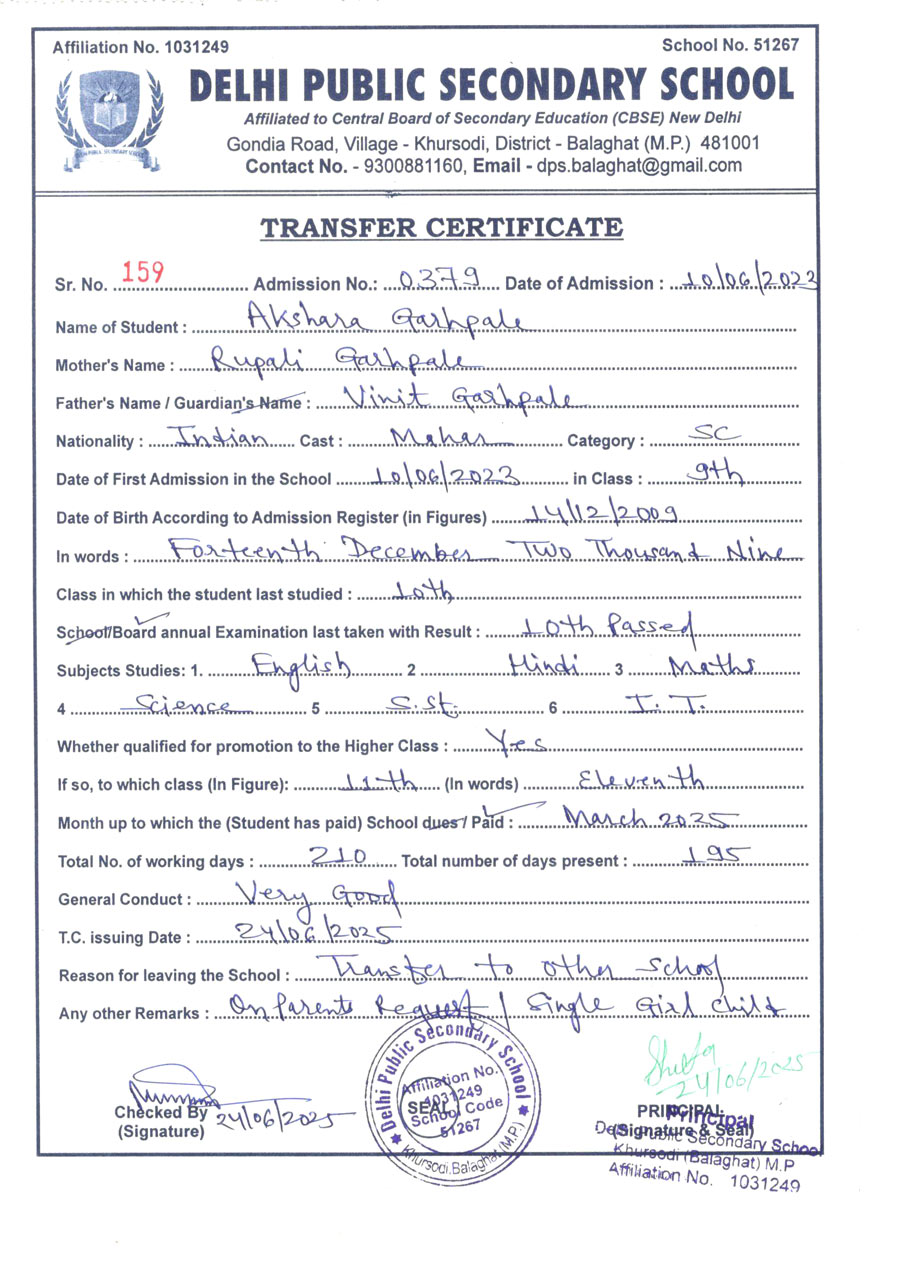 Affiliation No. 1031249 School No. 51267
DELHI PUBLIC SECONDARY SCHOOL
Affiliated to Central Board of Secondary Education (CBSE) New Delhi
Gondia Road, Village - Khursodi, District - Balaghat (M.P.) 481001
Contact No. - 9300881160, Email - dps.balaghat@gmail.com
DELHI PUBLIC SECONDARY SCHOOL
TRANSFER CERTIFICATE
Sr. No. 159 Admission No.: 0379 Date of Admission : 10/06/2023
Name of Student : Akshara Garhpale
Mother's Name : Rupali Garhpale
Father's Name / Guardian's Name : Vinit Garhpale
Nationality : Indian Cast : Mahar Category : SC
Date of First Admission in the School 10/06/2023 in Class : 9th
Date of Birth According to Admission Register (in Figures) 14/12/2009
In words : Forteenth December Two Thousand Nine
Class in which the student last studied : 10th
School/Board annual Examination last taken with Result : 10th Passed
Subjects Studies: 1. English 2 Hindi 3 Maths
4 Science 5 S.St. 6 I.T.
Whether qualified for promotion to the Higher Class : Yes
If so, to which class (In Figure): 11th (In words) Eleventh
Month up to which the (Student has paid) School dues / Paid : March 2025
Total No. of working days : 210 Total number of days present : 195
General Conduct : Very Good
T.C. issuing Date : 24/06/2025
Reason for leaving the School : Transfer to other School
Any other Remarks : On Parents Request / Single Girl Child
Delhi Public Secondary School
Affiliation No.
1031249
SEAL
School Code
51267
Khursodi, Balaghat (M.P.)
24/06/2025
Checked By 24/06/2025
(Signature)
PRINCIPAL
(Signature & Seal)
Principal
Delhi Public Secondary School
Khursodi (Balaghat) M.P
Affiliation No. 1031249